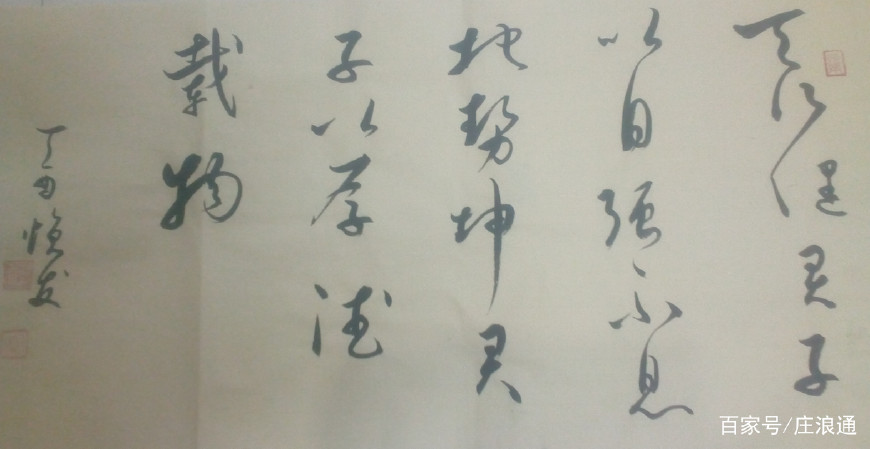 天行健君子
以自强不息
地勢坤君
子以厚德
載物
丁酉
百家号/庄浪通